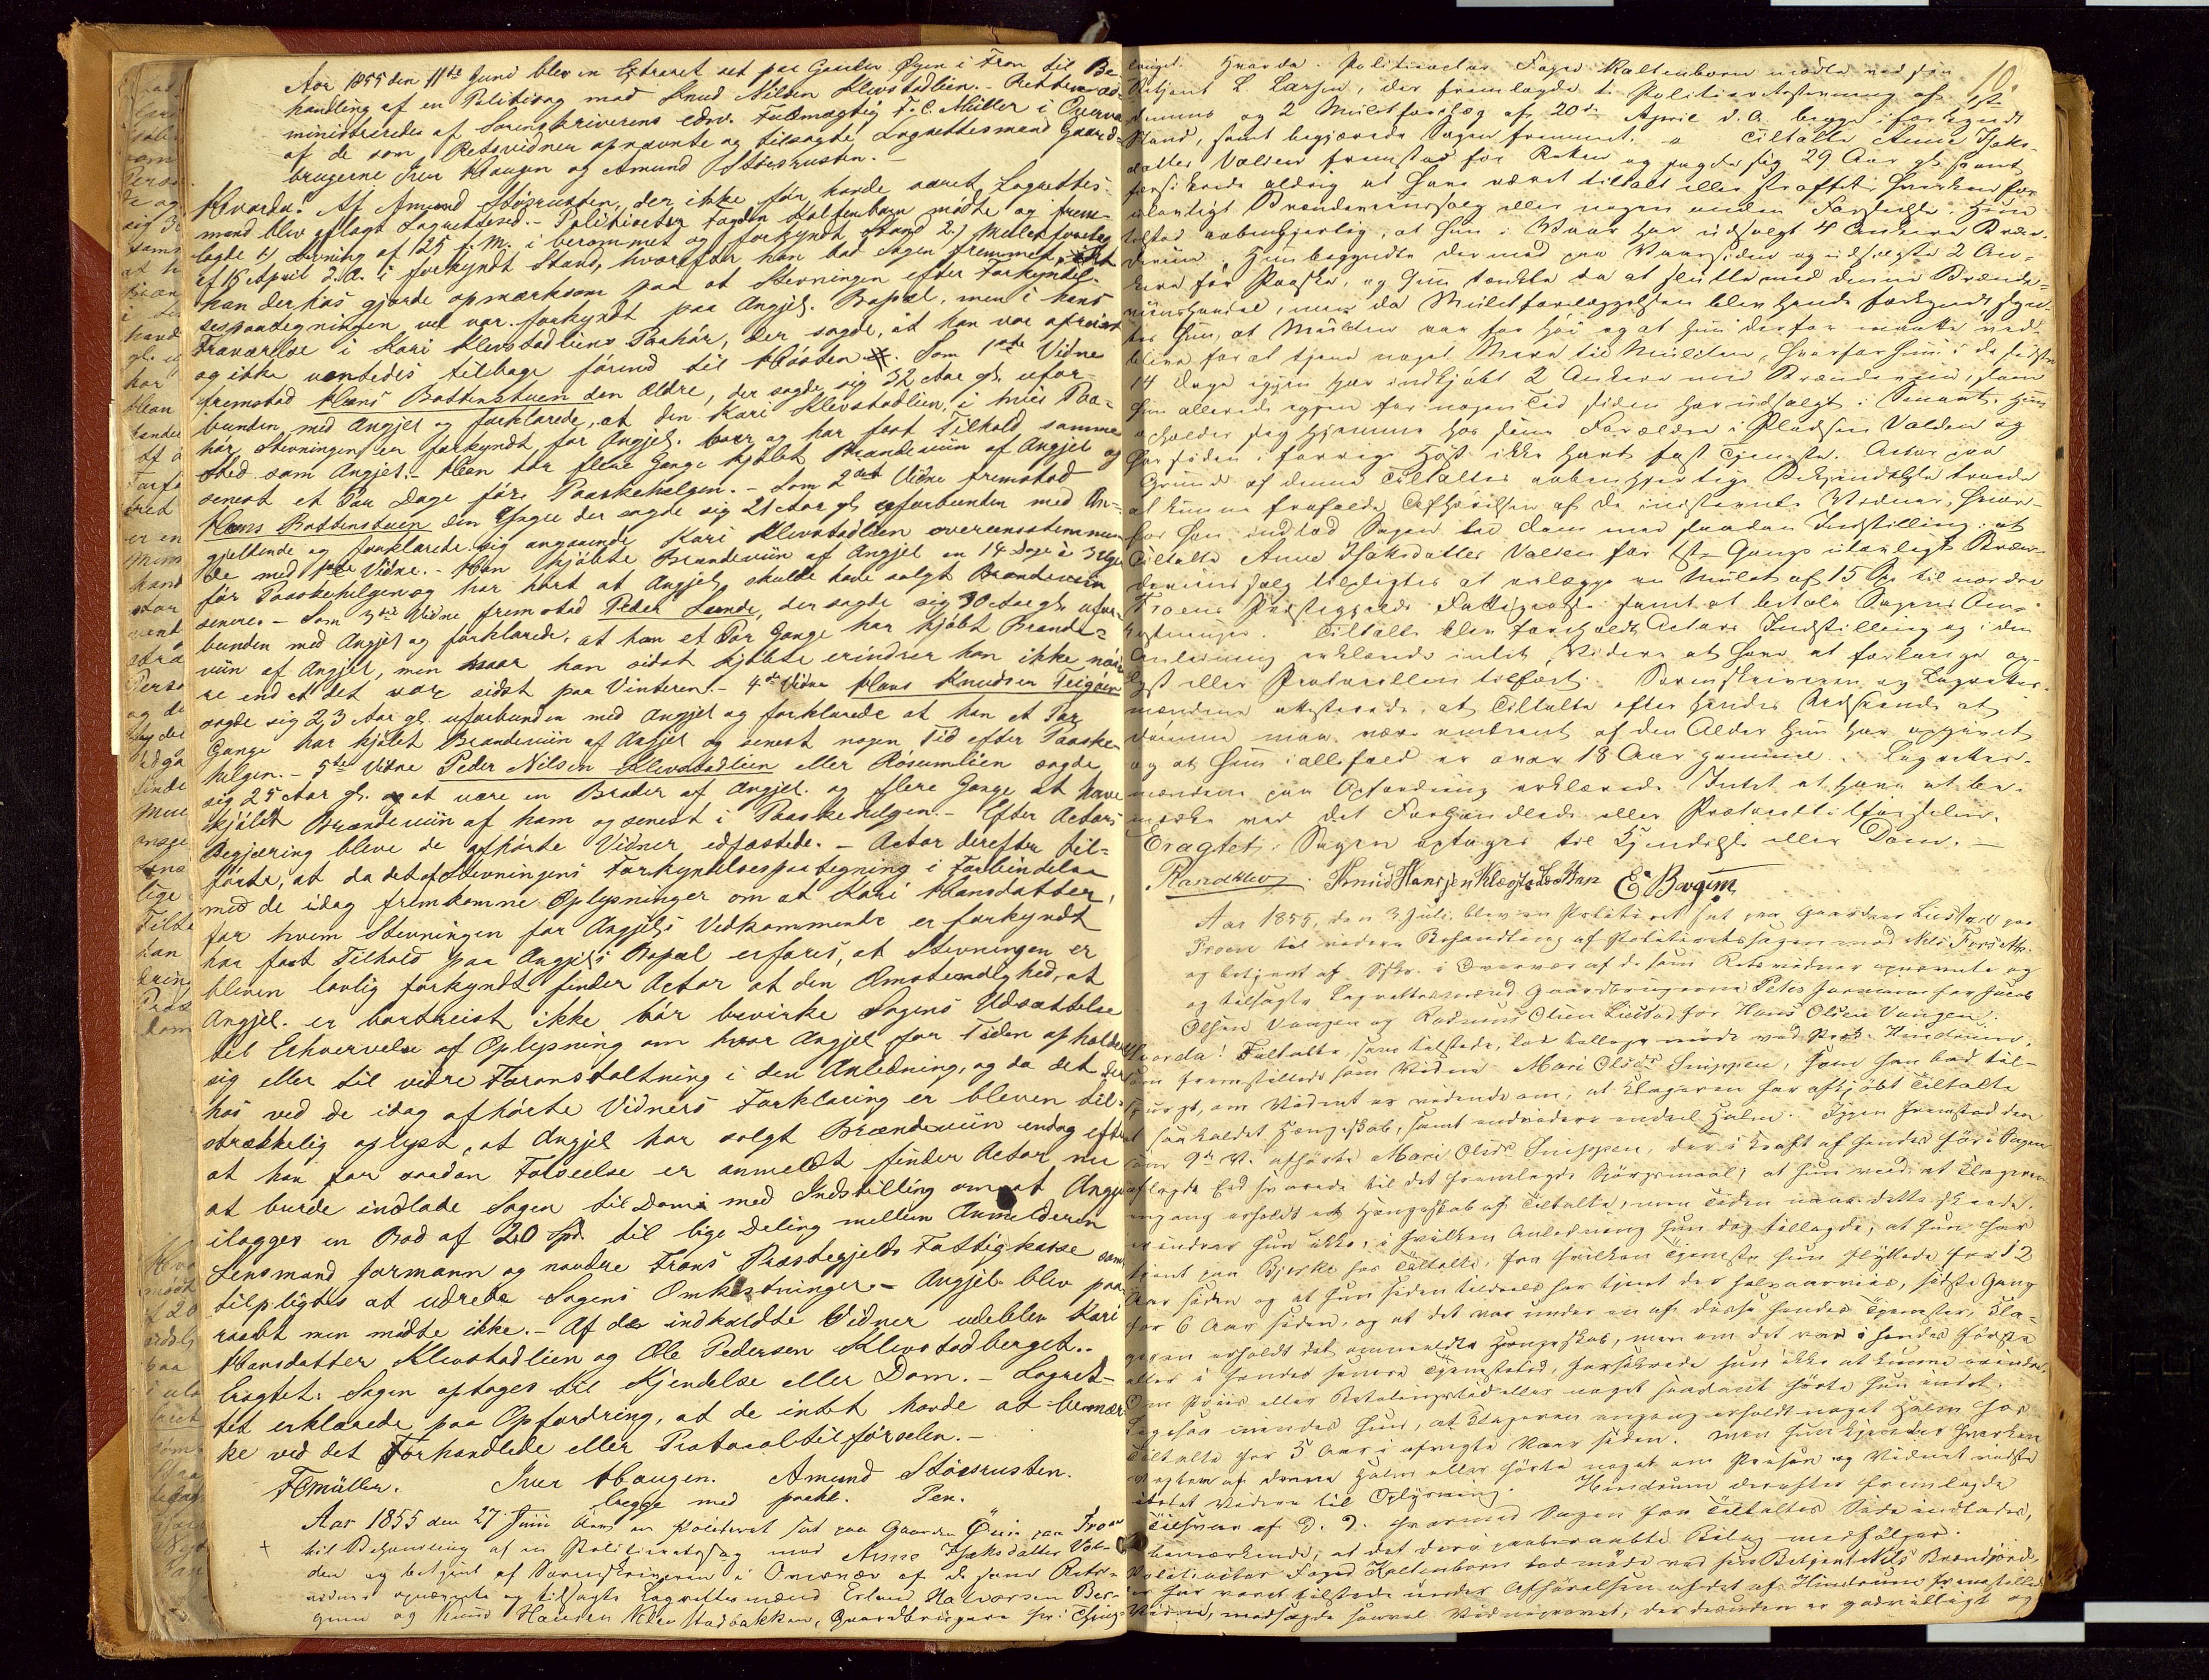 Aar 1855 den 11te Juni blev en Extraret sat paa Gaarden Øyen i Fron til Be-
handling af en Politisag mod Knud Nilsen Klevstadlien. - Retten ad-
ministreredes af Sorenskriverens edsv. Fuldmægtig F. C. Müller i Overvær
af de som Retsvidner opnævnte og tilsagte Lagrettesmænd Gaard-
brugerne Iver Haugen og Amund Stöisrusten. -
Hvorda: Af Amund Stöisrusten, der ikke för havde været Lagrettes-
mand blev aflagt Lagrettesed. - Politiactor Fogden Kaltenborn mödte og frem-
lagde 1) Stevning af 125 f. M. i berammet og forkyndt Stand 2) Mulctforelæg
af 18 April d. A. i forkyndt Stand, hvorefter han bad Sagen fremmet,
han derhos gjorde opmærksom paa at Stevningen efter Forkyndel-
sespaategningen vel var forkyndt paa Angjel. Bopæl, men i hans
Fraværelse i Kari Klevstadliens Paahör, der sagde, at han var afreist
og ikke ventedes tilbage förend til Hösten. Som 1ste Vidne
fremstod Hans Bottenstuen den Ældre, der sagde sig 32 Aar gl. ufor-
bunden med Angjel og forklarede, at den Kari Klevstadlien, i hvis Paa-
hör Stevningen er forkyndt for Angjel. boer og har fast Tilhold samme
Sted som Angjel. - Han har flere Gange kjöbt Brændeviin af Angjel og
senest et Par Dage före Paaskehelgen. - Som 2det Vidne fremstod
Hans Bottenstuen den Yngre der sagde sig 21 Aar gl. uforbunden med An-
gjeldende og forklarede sig angaaende Kari Klevstadlien overensstemmen
de med 1ste Vidne. - Han kjöbte Brændeviin af Angjel en 14 Dage à 3 Uger
för Paaskehelgen og har hört at Angjel. skulde have solgt Brændeviin
senere. - Som 3die Vidne fremstod Peder Lunde, der sagde sig 30 Aar gl. ufor-
bunden med Angjel og forklarede, at han et Par Gange har kjöbt Brænde-
viin af Angjel, men naar han sidst kjöbte erindrer han ikke nöie-
re end at det var sidst paa Vinteren. - 4de Vidne Hans Knudsen Teigen
sagde sig 23 Aar gl. uforbunden med Angjel og forklarede at han et Par
Gange har kjöbt Brændeviin af Angjel og senest nogen Tid efter Paaske-
helgen. - 5te Vidne Peder Nilsen Klevstadlien eller Rosumlien sagde
sig 25 Aar gl. og at være en Broder af Angjel. og flere Gange at have
kjöbt Brændeviin af ham og senest i Paaskehelgen. - Efter Actors
Begjæring bleve de afhörte Vidner edfæstede. - Actor derefter til-
förte, at da det af Stevningens Forkyndelsespaategning i Forbindelse
med de idag fremkomne Oplysninger om at Kari Hansdatter,
for hvem Stevningen for Angjels Vedkommende er forkyndt
har fast Tilhold paa Angjels Bopæl erfares, at Stevningen er
bleven lovlig forkyndt finder Actor at den Omstændighed, at
Angjel. er bortreist ikke bör bevirke Sagens Udsættelse
til Erhvervelse af Oplysning om hvor Angjel for Tiden opholder
sig eller til vidre Foranstaltning i den Anledning, og da det der
hos ved de idag afhörte Vidners Forklaring er bleven til-
strækkelig oplyst, at Angjel har solgt Brændeviin endog efter
at han for saadan Forseelse er anmeldt finder Actor nu
at burde indlade Sagen til Dom med Indstilling om at Angjel
ilægges en Bod af 20 Spd. til lige Deling mellem Anmelderen
Lensmand Jormann og nordre Frons Præstegjelds Fattigkasse samt
tilpligtes at udrede Sagens Omkostninger. - Angjel. blev paa-
raabt men mödte ikke. - Af de indkaldte Vidner udeblev Kari
Hansdatter Klevstadlien og Ole Pedersen Klevstadberget. -
Eragtet: Sagen optages til Kjendelse eller Dom. - Lagret-
tet erklærede paa Opfordring, at de intet havde at bemær
ke ved det Forhandlede eller Protocoltilförselen. -
FCMüller. Iver Haugen. Amund Stöisrusten.
begge med paahl. Pen.
Aar 1855 den 27 Juni blev en Politiret sat paa Gaarden Öiin paa Fron
til Behandling af en Politiretssag mod Anne Isaksdatter Val-
den og betjent af Sorenskriveren i Overvær af de som Rets-
vidner opnævnte og tilsagte Lagrettesmænd Erland Halvorsen Ber-
gum og Knud Hansen Klevstadbakken, Gaardbrugere her i Thing-
10
laget. Hvorda. Politiactor Foged Kaltenborn mödte ved sin
Betjent L. Larsen, der fremlagde 1. Politiretsstevning af
dennes og 2 Mulctforelæg af 20de April d. A. begge i forkyndt
Stand, samt begjærede Sagen fremmet. - Tiltalte Anne Isaks-
datter Valden fremstod for Retten og sagde sig 29 Aar gl. samt
forsikrede aldrig at have været tiltalt eller straffet hverken for
ulovligt Brændeviinssalg eller nogen anden Forseelse. Hun
tilstod aabenhjertig, at hun i Vaar har udsolgt 4 Ankere Bræn-
deviin. Hun begyndte dermed paa Vaarsiden og udsolgte 2 An-
kere för Paaske, og hun tænkte da at slutte med denne Brænde-
viinshandel, men da Mulctforelæggelsen blev hende forkyndt, syn-
tes hun, at Mulcten var for höi og at hun derfor maatte ved-
blive for at tjene noget Mere til Mulcten, hvorfor hun i de sidste
14 Dage igjen har indkjöbt 2 Ankere med Brændeviin, som
hun allerede igjen for nogen Tid siden har udsolgt. Hun
opholder sig hjemme hos sine Forældre i Pladsen Valden og
har siden forrige Höst ikke havt fast Tjeneste. Actor paa
Grund af denne Tiltaltes aabenhjertige Bekjendelse troede
at kunne frafalde Afhörelsen af de indstevnte Vidner, hvor-
for han indlod Sagen til Dom med saadan Indstilling: at
Tiltalte Anne Isaksdatter Valden for 1ste Gangs ulovligt Bræn-
deviinssalg tilpligtes at erlægge en Mulct af 15 Spd. til nordre
Froens Præstegjelds Fattigcasse samt at betale Sagens Om-
kostninger. Tiltalte blev foreholdt Actors Indstilling og i den
Anledning erklærede intet Videre at have at forlange op-
lyst eller Protocollen tilfört. Sorenskriveren og Lagrettes-
mændene attesterede, at Tiltalte efter hendes Udseende at
dömme maa være omtrent af den Alder hun har opgivet
og at hun i alle fald er over 18 Aar gammel. Lagrettes-
mændene paa Opfordring erklærede Intet at have at be-
mærke ved det Forhandlede eller Protocoltilförselen.
Eragtet. Sagen optages til Kjendelse eller Dom. -
Randklev. Knud Hansen Klevstadbakken E. Bergum
Aar 1855, den 3 Juli, blev en Politiret sat paa Gaarden Liustad paa
Froen til videre Behandling af Politiretssagen mod Nils Forseth.
og betjent af Sskr. i Overvær af de som Retsvidner opnævnte og
og tilsagte Lagrettesmænd Gaardbrugerne Peter Jormann for Jacob
Olsen Vangen og Rasmus Olsen Liustad for Hans Olsen Vangen.
Hvorda! Tiltalte, som tilstede, lod tillige möde ved Hindrum.
som fremstillede som Vidne Mari Olsdr Snippen, som han bad til-
spurgt, om Vidnet er vidende om, at Klageren har afkjöbt Tiltalte
et saakaldet Hængeskab, samt endvidere endeel Halm. Igjen fremstod den
som 9de V. afhörte Mari Olsdr Snippen, der i Kraft af hendes för i Sagen
aflagde Eed svarede til det fremlagde Spörgsmaal; at hun veed, at Klageren
engang erholdt et Hængeskab af Tiltalte, men Tiden naar dette skeede,
erindrer hun ikke, i hvilken Anledning hun dog tillagde, at hun har
tjent paa Bjerke hos Tiltalte, fra hvilken Tjeneste hun flyttede for 12
Aar siden og at hun siden tildeels har tjent der halvaarviis, sidste Gang
for 6 Aar siden, og at det var under en af disse hendes Tjenester, Kla-
geren erholdt det ommeldte Hængeskab, men om det var i hendes förste
eller i hendes senere Tjenestetid, forsikrede hun ikke at kunne erindre.
Om Priis eller Betalingstid eller noget saadant hörte hun intet.
Ligesaa mindes hun, at Klageren engang erholdt noget Halm hos
Tiltalte for 5 Aar i afvigte Vaar siden. Men hun kjender hverken
Vægten af denne Halm eller hörte noget om Prisen og Vidnet vidste
intet Videre til Oplysning. Hindrum derefter fremlagde
Tilsvar af D. D. hvormed Sagen fra Tiltaltes Side indlodes,
bemærkende, at det deri paaberaabte Bilag medfölger.
Politiactor Foged Kaltenborn lod möde ved sin Betjent Nils Brandjord,
der har været tilstede under Afhörelsen af det af Hindrum fremstillede
Vidne, modsagde saavel Vidneprovet, der desuden er godvilligt og